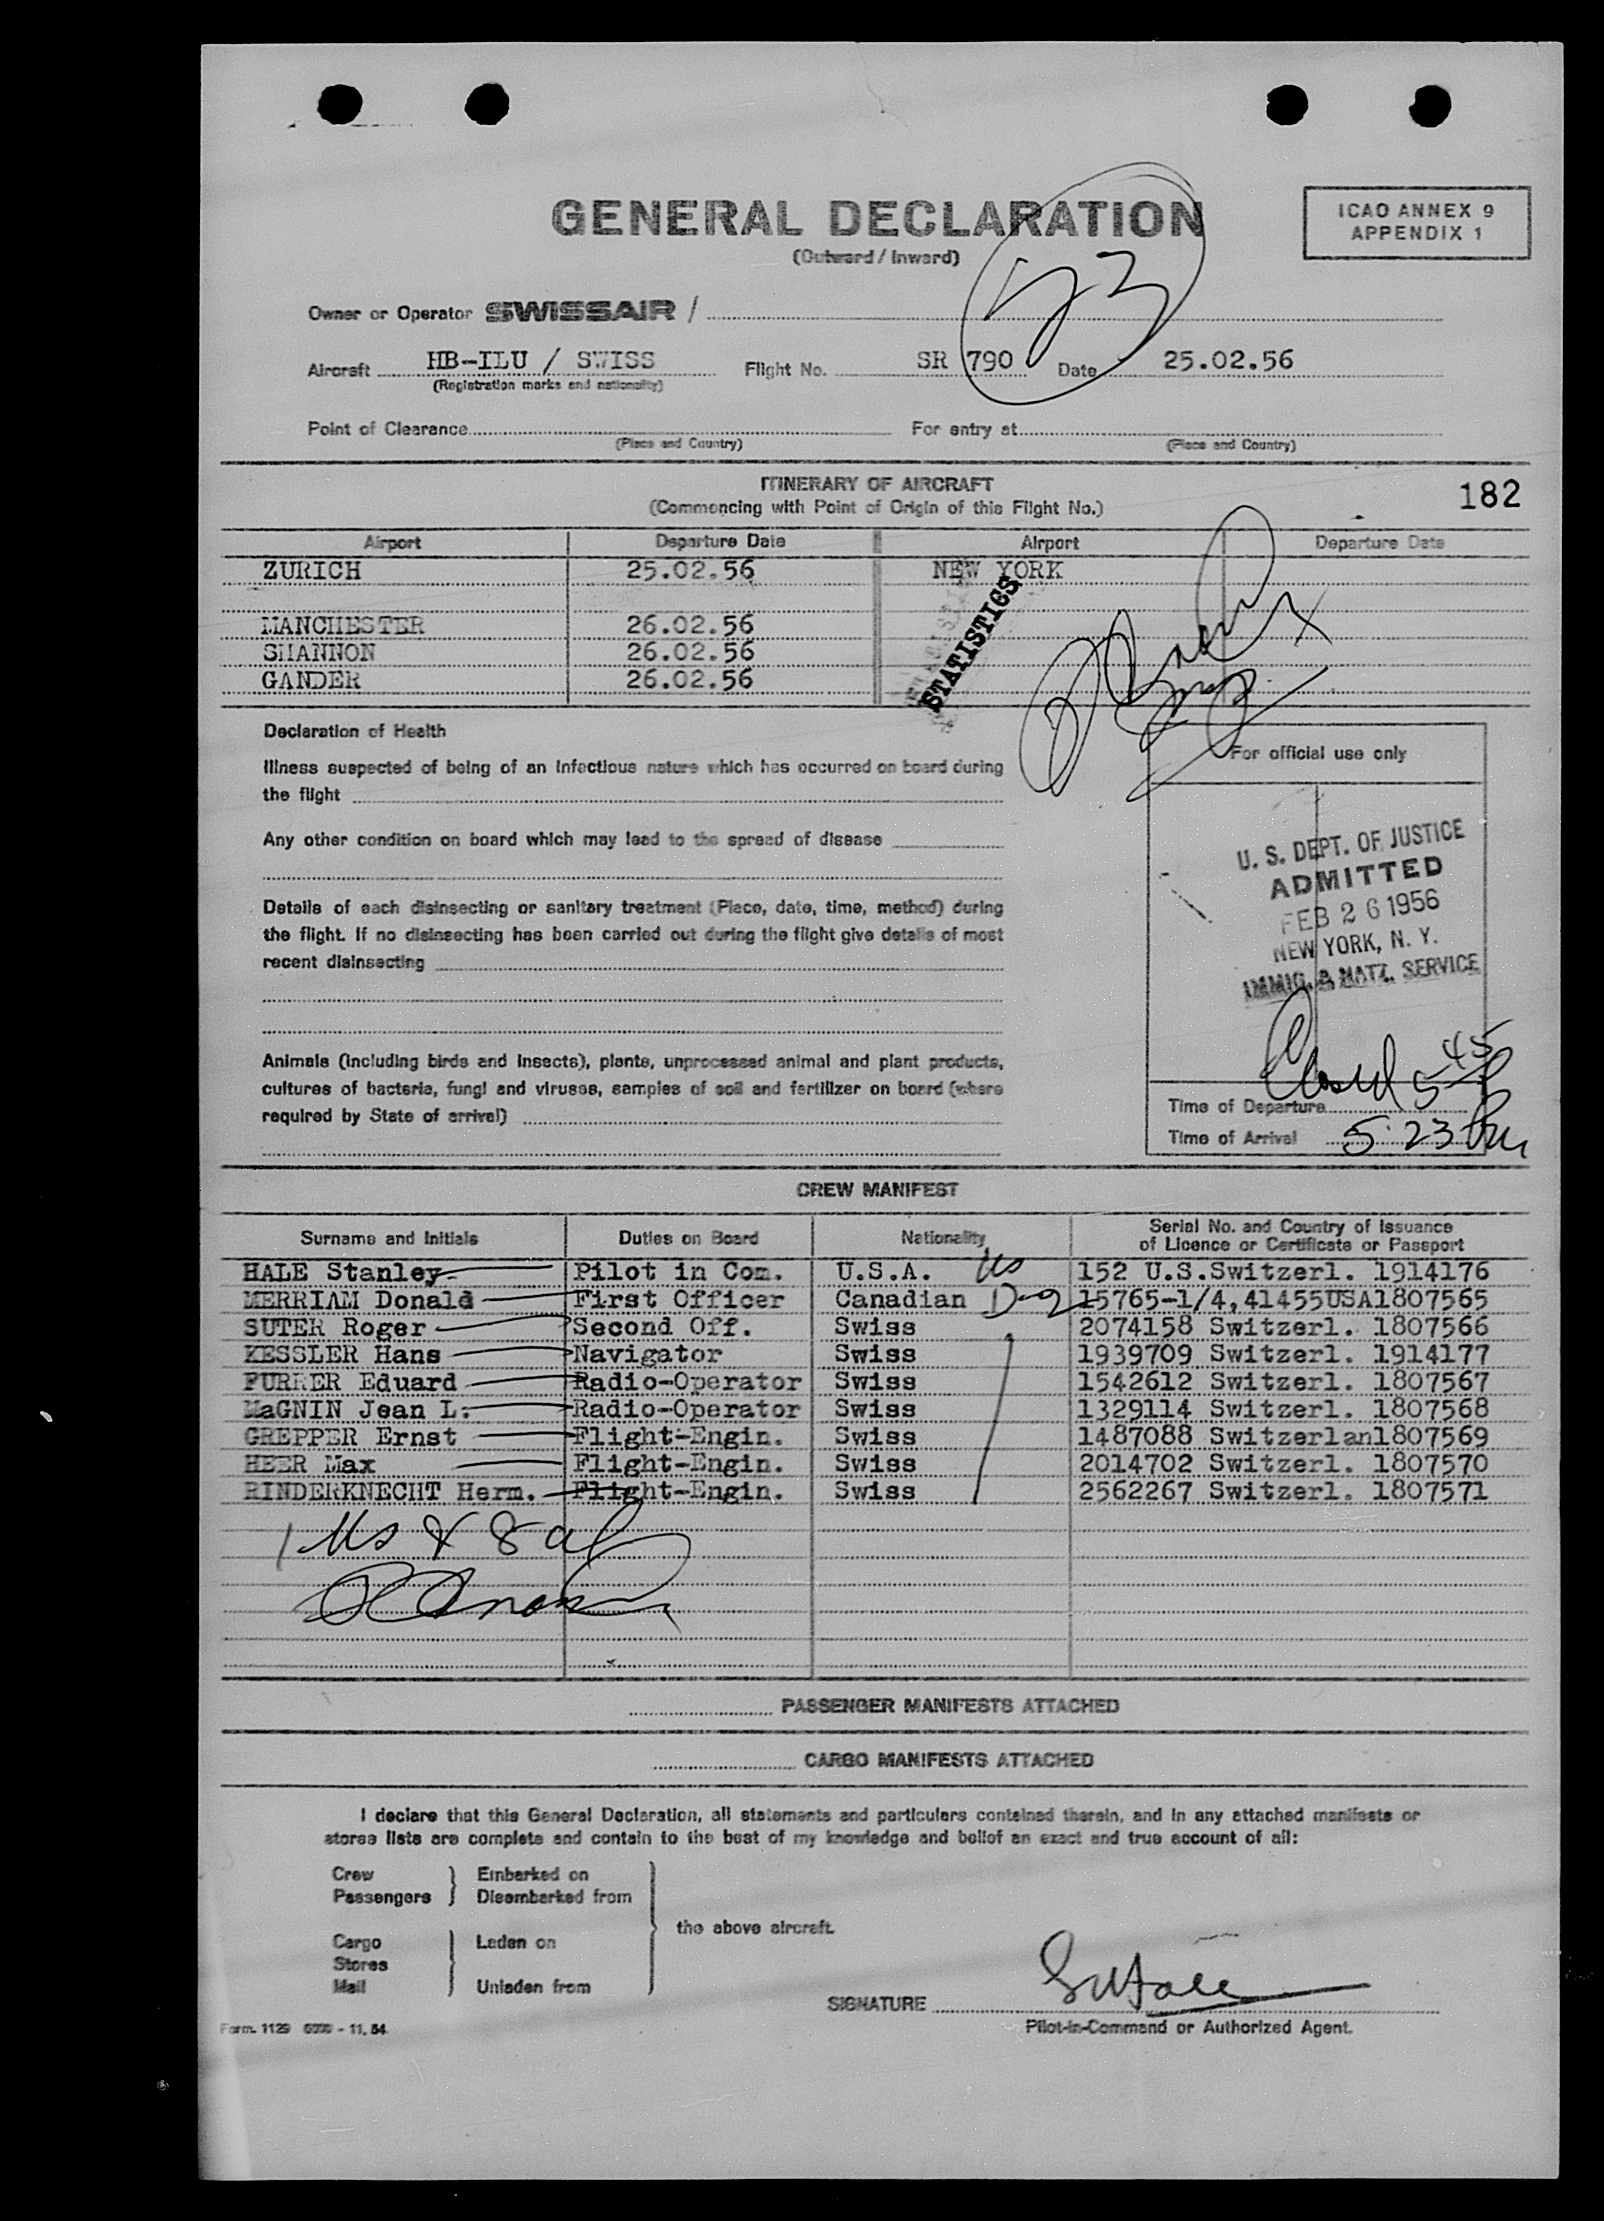 GENERAL DECLARATION
(Outward / Inward)
ICAO ANNEX 9
APPENDIX 1
Owner or Operator SWISSAIR /
Aircraft HB-ILU / SWISS Flight No. SR 790 Date 25.02.56
(Registration marks and nationality)
Point of Clearance For entry at
(Place and Country) (Place and Country)
ITINERARY OF AIRCRAFT
(Commencing with Point of Origin of this Flight No.)
182
Airport Departure Date Airport Departure Date
ZURICH 25.02.56 NEW YORK
MANCHESTER 26.02.56
SHANNON 26.02.56
GANDER 26.02.56
STATISTICS
Declaration of Health
Illness suspected of being of an infectious nature which has occurred on board during
the flight
Any other condition on board which may lead to the spread of disease
Details of each disinsecting or sanitary treatment (Place, date, time, method) during
the flight. If no disinsecting has been carried out during the flight give details of most
recent disinsecting
Animals (including birds and insects), plants, unprocessed animal and plant products,
cultures of bacteria, fungi and viruses, samples of soil and fertilizer on board (where
required by State of arrival)
For official use only
U. S. DEPT. OF JUSTICE
ADMITTED
FEB 26 1956
NEW YORK, N. Y.
IMMIG. & NATZ. SERVICE
Closed 5 45 P
Time of Departure
Time of Arrival 5:23 Pm
CREW MANIFEST
Surname and Initials Duties on Board Nationality Serial No. and Country of Issuance
of Licence or Certificate or Passport
HALE Stanley Pilot in Com. U.S.A. US 152 U.S.Switzerl. 1914176
MERRIAM Donald First Officer Canadian 15765-1/4,41455USA1807565
SUTER Roger Second Off. Swiss 2074158 Switzerl. 1807566
KESSLER Hans Navigator Swiss 1939709 Switzerl. 1914177
FURRER Eduard Radio-Operator Swiss 1542612 Switzerl. 1807567
MaGNIN Jean L. Radio-Operator Swiss 1329114 Switzerl. 1807568
GREPPER Ernst Flight-Engin. Swiss 1487088 Switzerlan1807569
HEER Max Flight-Engin. Swiss 2014702 Switzerl. 1807570
RINDERKNECHT Herm. Flight-Engin. Swiss 2562267 Switzerl. 1807571
1 US & 8 al
PASSENGER MANIFESTS ATTACHED
CARGO MANIFESTS ATTACHED
I declare that this General Declaration, all statements and particulars contained therein, and in any attached manifests or
stores lists are complete and contain to the best of my knowledge and belief an exact and true account of all:
Crew Embarked on
Passengers Disembarked from
the above aircraft.
Cargo Laden on
Stores
Mail Unladen from
SIGNATURE
Pilot-in-Command or Authorized Agent.
Form. 1129 6000 - 11. 54.